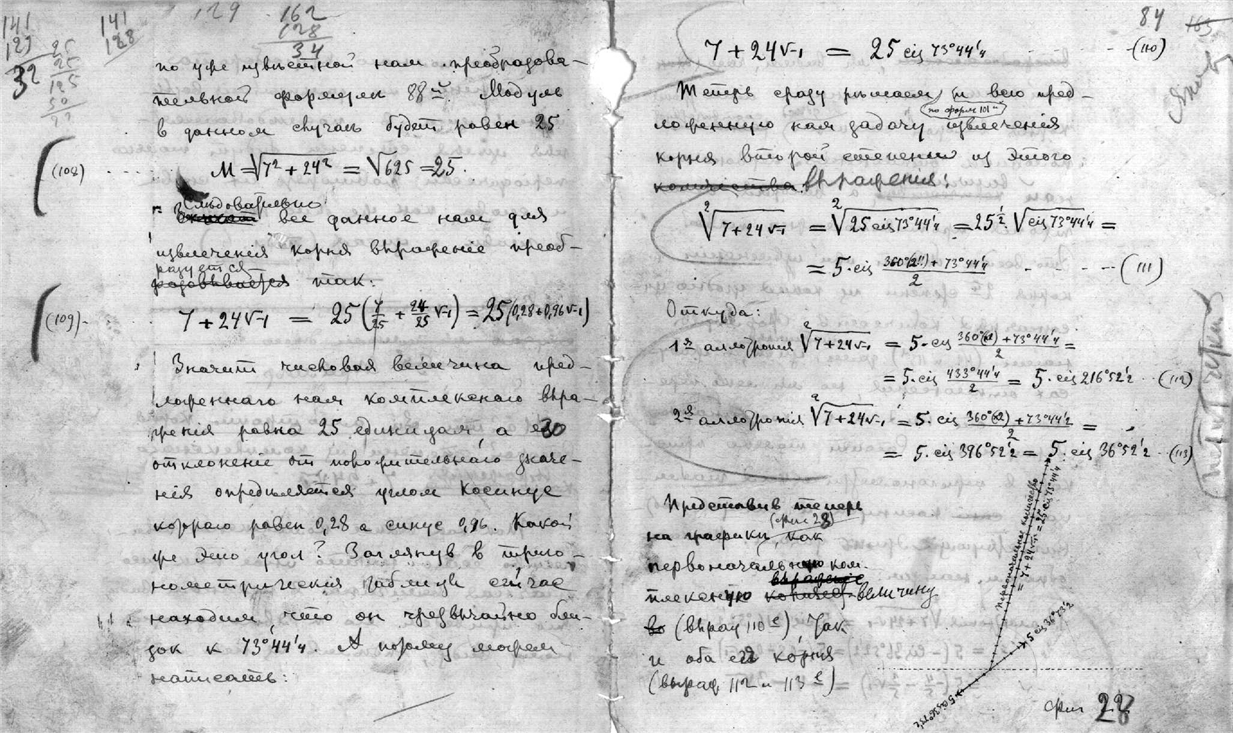 141
129
32
25
25
125
50
141
128
129
162
128
34
по уже извѣстной намъ преобразова-
тельной формулѣ 88й. Модуль
в данном случаѣ будет равен 25
(108) M = √7² + 24² = √625 = 25.
Слѣдовательно
все данное нам для
извлеченія корня выраженіе преоб-
разуется
так:
(109) 7 + 24√-1 = 25 (7/25 + 24/25 √-1) = 25 (0,28 + 0,96 √-1)
Значит числовая величина пред-
ложеннаго нам комплекснаго выра-
женія равна 25 единицам, а его
отклоненіе от положительнаго значе-
нія опредѣляется углом Косинус
котораго равен 0,28 а синус 0,96. Какой
же это угол? Заглянув в триго-
нометрическія таблицы сейчас
находим что он чрезвычайно бли-
зок к 73°44¼. А потому можем
написать:
84 163
7 + 24√-1 = 25 cis 73°44¼ (110)
Теперь сразу рѣшаем и всю пред-
по форм 101й
ложенную нам задачу извлеченія
корня второй степени из этого
количества выраженія:
²√7 + 24√-1 = ²√25 cis 73°44¼ = 25^½ · √cis 73°44¼ =
= 5·cis 360°(2!!) + 73°44¼ / 2 (111)
Откуда:
1я аллотропія ²√7 + 24√-1 = 5·cis 360°(1) + 73°44¼ / 2 =
= 5·cis 433°44¼ / 2 = 5·cis 216°52½ (112)
2я аллотропія ²√7 + 24√-1 = 5·cis 360°(2) + 73°44¼ / 2 =
= 5·cis 396°52½ = 5·cis 36°52½ (113)
Представив теперь
(фиг 28)
на графикѣ, как
первоначальную ком-
плексную величину
(выраж 110е) так
и оба её корня
(выраж. 112 и 113е)
Первоначальное количество
= 7 + 24√-1 = 25 cis 73°44¼
5 cis 36°52½
фиг 28